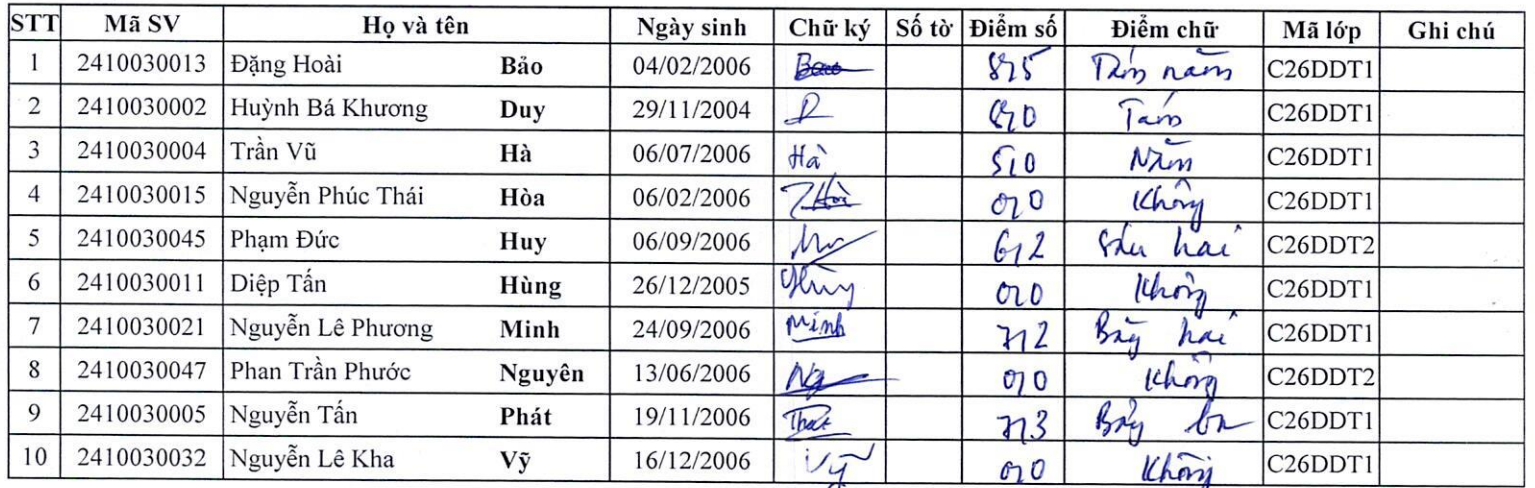 STT Mã SV Họ và tên Ngày sinh Chữ ký Số tờ Điểm số Điểm chữ Mã lớp Ghi chú
1 2410030013 Đặng Hoài Bảo 04/02/2006 Bao 8,5 Tám năm C26DDT1
2 2410030002 Huỳnh Bá Khương Duy 29/11/2004 D 8,0 Tám C26DDT1
3 2410030004 Trần Vũ Hà 06/07/2006 Hà 5,0 Năm C26DDT1
4 2410030015 Nguyễn Phúc Thái Hòa 06/02/2006 0,0 Không C26DDT1
5 2410030045 Phạm Đức Huy 06/09/2006 6,2 Sáu hai C26DDT2
6 2410030011 Diệp Tấn Hùng 26/12/2005 Hùng 0,0 Không C26DDT1
7 2410030021 Nguyễn Lê Phương Minh 24/09/2006 Minh 7,2 Bảy hai C26DDT1
8 2410030047 Phan Trần Phước Nguyên 13/06/2006 0,0 Không C26DDT2
9 2410030005 Nguyễn Tấn Phát 19/11/2006 7,3 Bảy ba C26DDT1
10 2410030032 Nguyễn Lê Kha Vỹ 16/12/2006 Vỹ 0,0 Không C26DDT1